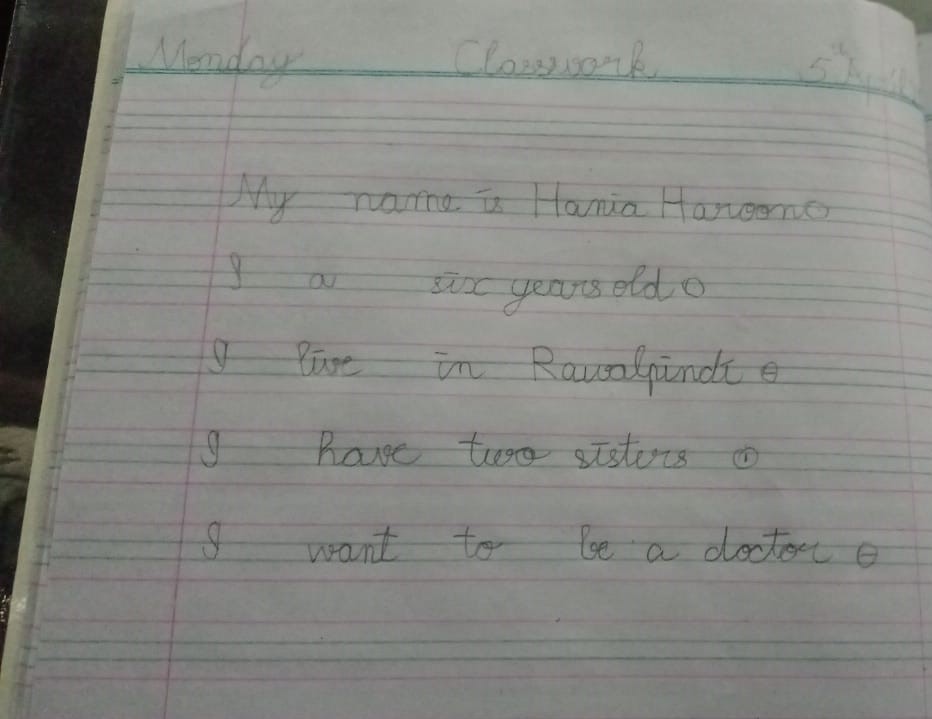 Monday Classwork 5th April
My name is Hania Haroon.
I a six years old.
I live in Rawalpindi.
I have two sisters.
I want to be a doctor.